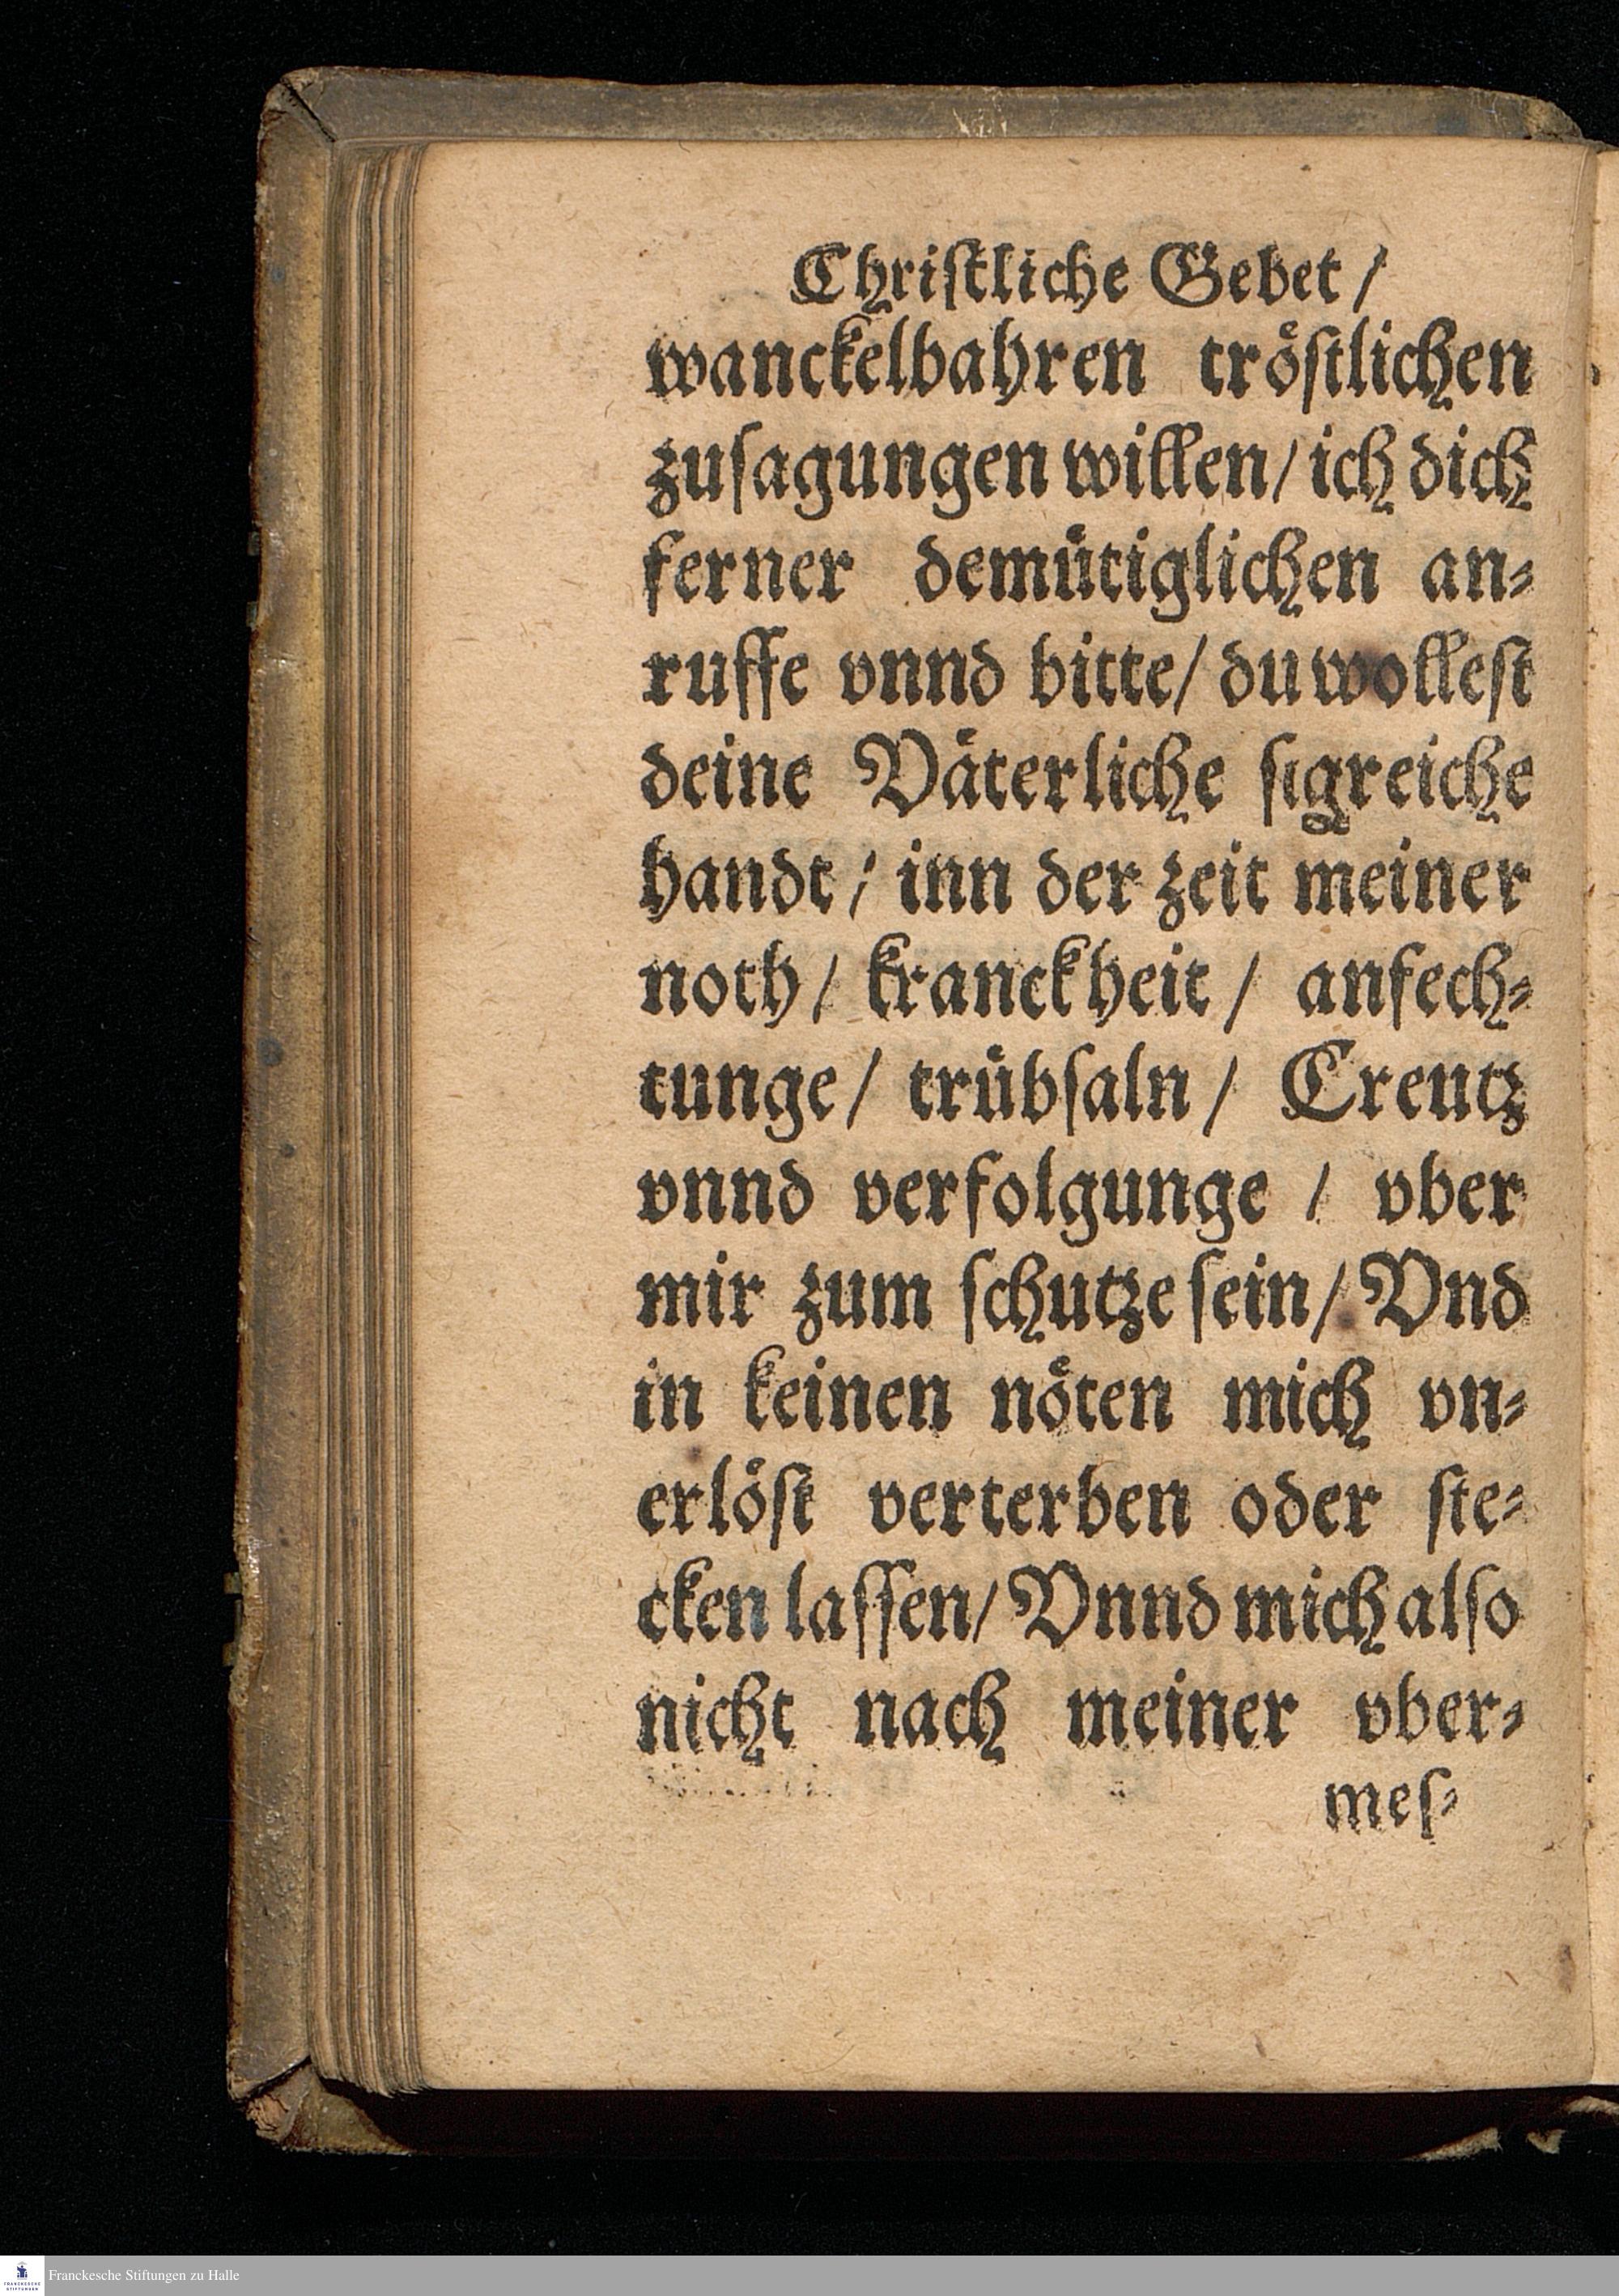 Chriſtliche Gebet /
wanckelbahren tröſtlichen
zuſagungen willen / ich dich
ferner demütiglichen an⸗
ruffe vnnd bitte / du wolleſt
deine Väterliche ſigreiche
handt / inn der zeit meiner
noth / kranckheit / anfech⸗
tunge / trübſaln / Creutz
vnnd verfolgunge / vber
mir zum ſchutze ſein / Vnd
in keinen nöten mich vn⸗
erlöſt verterben oder ſte⸗
cken laſſen / Vnnd mich alſo
nicht nach meiner vber⸗
meſ⸗
FRANCKESCHE STIFTUNGEN
Franckesche Stiftungen zu Halle